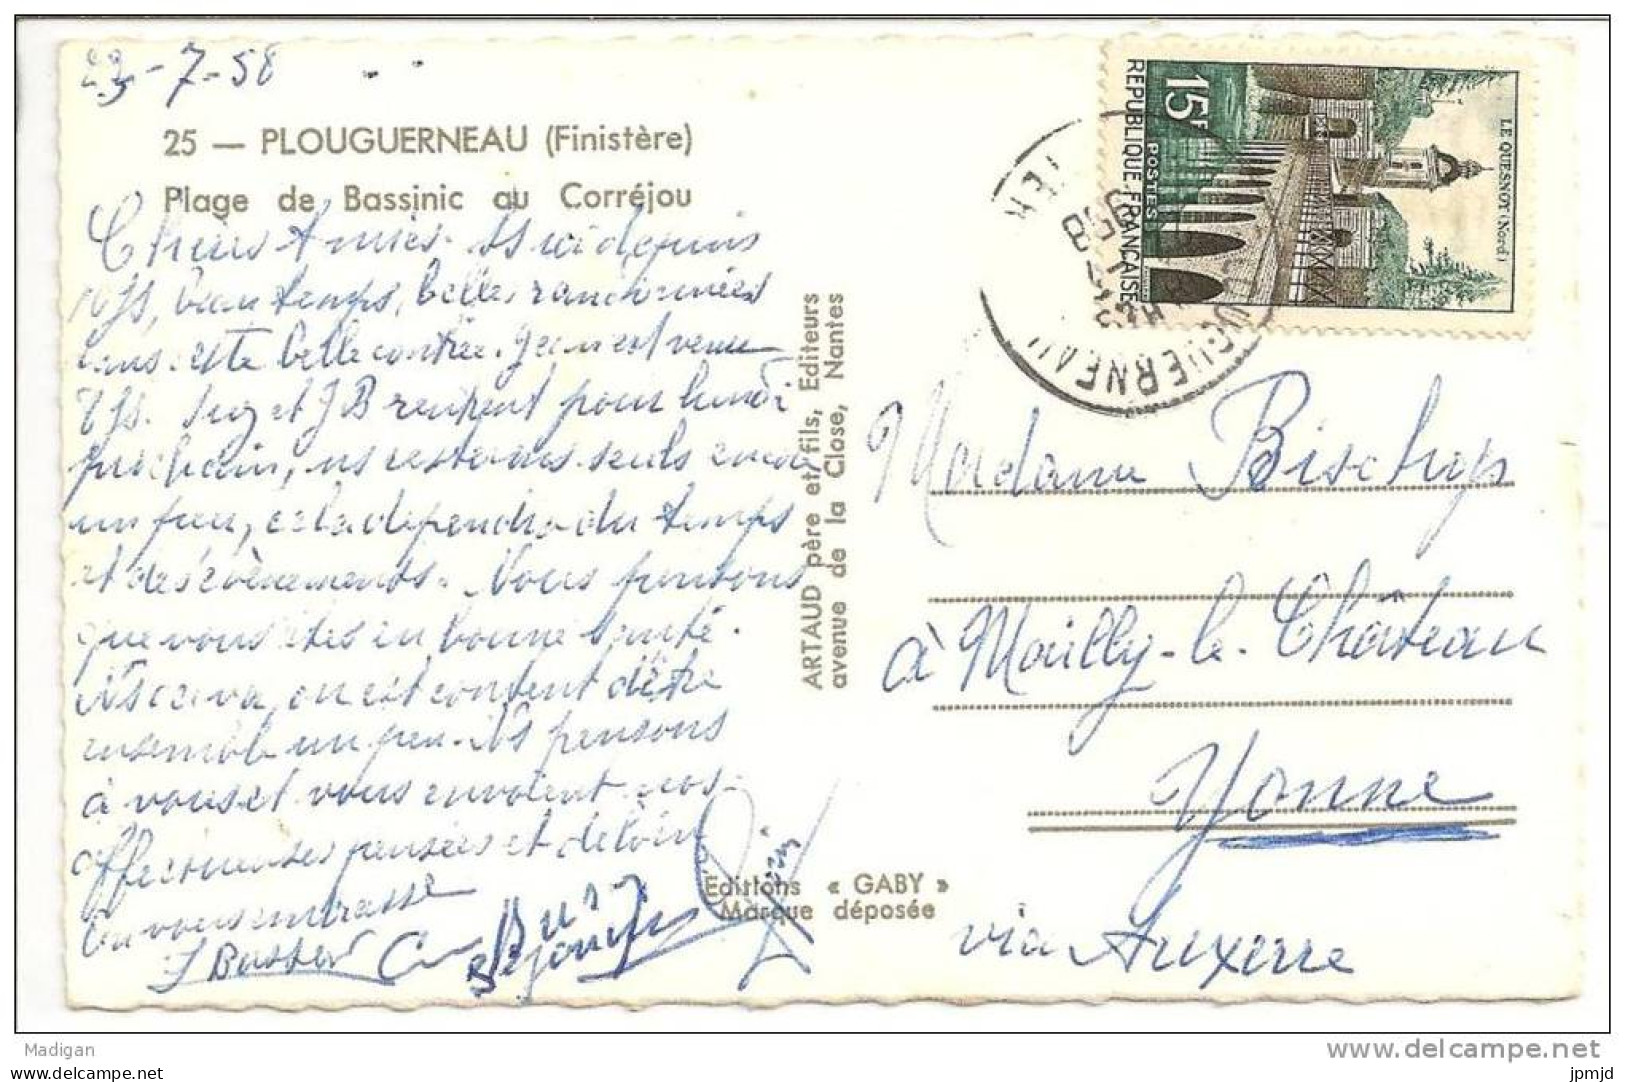 23-7-58
25 — PLOUGUERNEAU (Finistère)
Plage de Bassinic au Corréjou
Chers Amies. Ns ici depuis
10 js, beau temps, belles randonnées
dans cette belle contrée. Jean est venu
8 js. Suz et JB rentrent pour lundi
prochain, ns resterons seuls encore
un peu, cela dépendra du temps
et des évènements. Nous pensons
que vous êtes en bonne santé.
Ns ça va, on est content d'être
ensemble un peu. Ns pensons
à vous et vous envoient nos
affectueuses pensées et de loin
on vous embrasse
ARTAUD père et fils, Editeurs
avenue de la Close, Nantes
Editions « GABY »
Marque déposée
REPUBLIQUE FRANÇAISE
15F
POSTES
LE QUESNOY (Nord)
PLOUGUERNEAU
Madame Bischup
à Mailly-le-Château
Yonne
via Auxerre
Madigan
www.delcampe.net
jpmjd